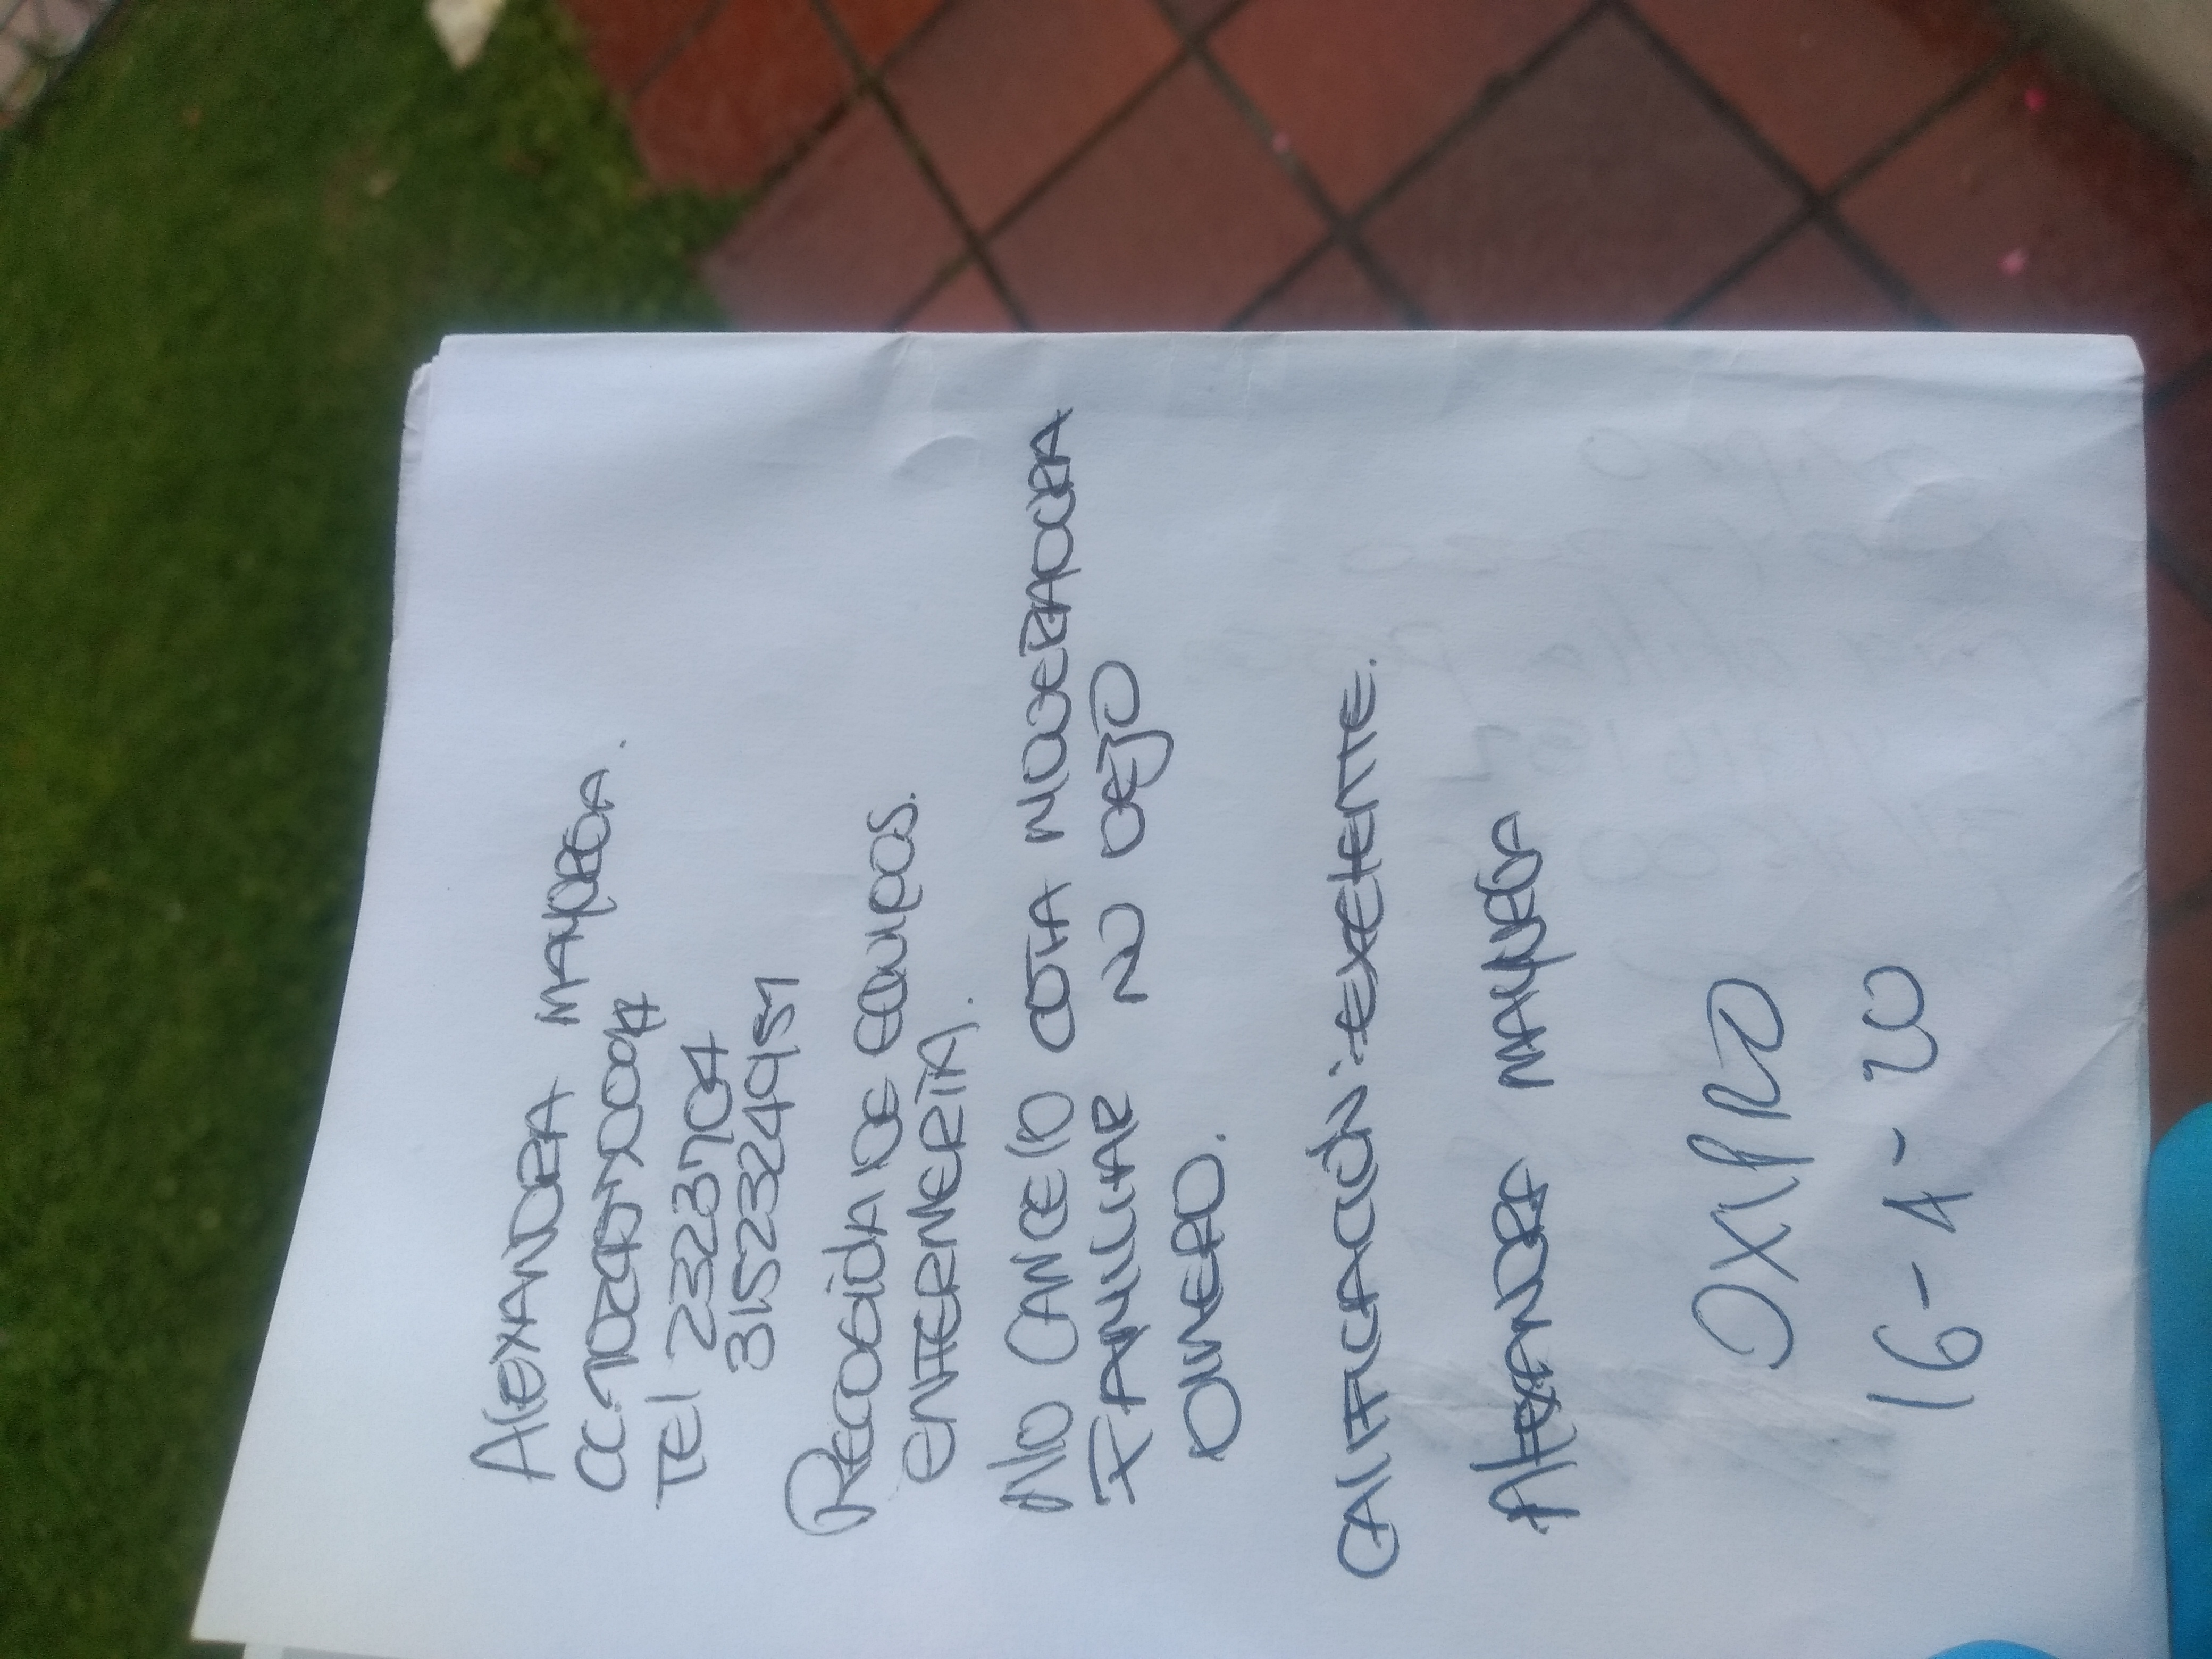 Alexandra Mayorga.
Tel 2323704
3152324951
Recogida de equipos
enfermería.
No cancelo cota moderadora
Familiar no dejo
dinero.
Calificación: exelente.
Alexandra Mayorga
OXIPRO
16-4-20